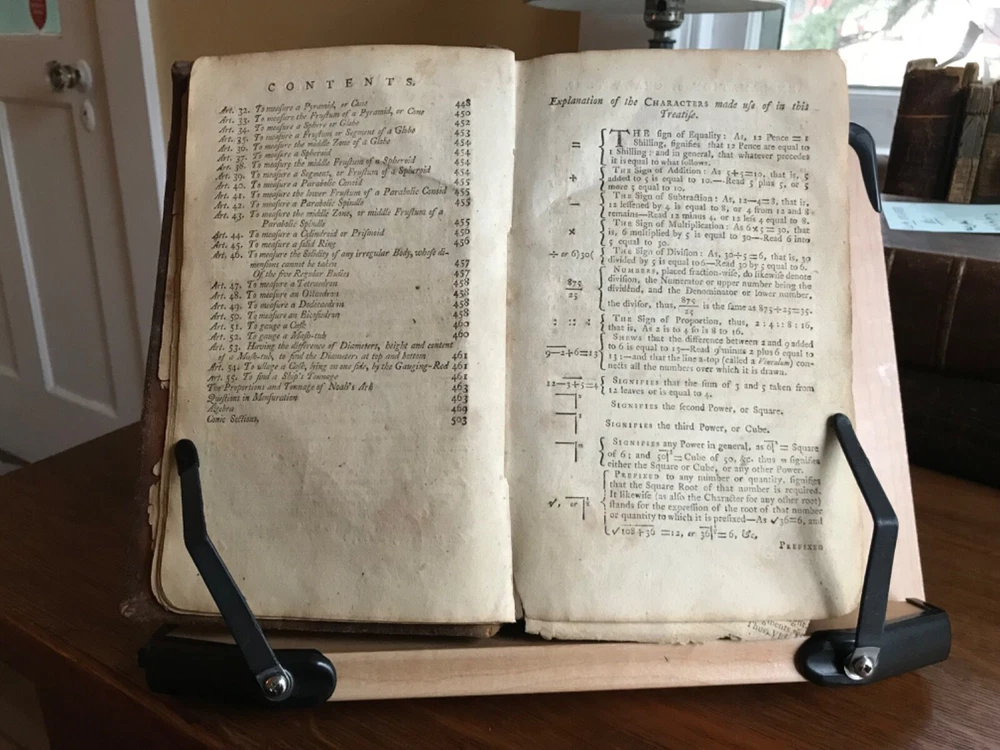 CONTENTS.
Art. 32. To measure a Pyramid, or Cone 448
Art. 33. To measure the Frustum of a Pyramid, or Cone 450
Art. 34. To measure a Sphere or Globe 452
Art. 35. To measure a Frustum or Segment of a Globe 453
Art. 36. To measure the middle Zone of a Globe 454
Art. 37. To measure a Spheroid 454
Art. 38. To measure the middle Frustum of a Spheroid 454
Art. 39. To measure a Segment, or Frustum of a Spheroid 454
Art. 40. To measure a Parabolic Conoid 455
Art. 41. To measure the lower Frustum of a Parabolic Conoid 455
Art. 42. To measure a Parabolic Spindle 455
Art. 43. To measure the middle Zone, or middle Frustum of a
Parabolic Spindle 455
Art. 44. To measure a Cylindroid or Prismoid 456
Art. 45. To measure a solid Ring 456
Art. 46. To measure the Solidity of any irregular Body, whose di-
mensions cannot be taken 457
Of the five Regular Bodies 457
Art. 47. To measure a Tetraedron 458
Art. 48. To measure an Octaedron 458
Art. 49. To measure a Dodecaedron 458
Art. 50. To measure an Eicosiedron 458
Art. 51. To gauge a Cask 460
Art. 52. To gauge a Mash-tub 460
Art. 53. Having the difference of Diameters, height and content
of a Mash-tub, to find the Diameters at top and bottom 461
Art. 54. To ullage a Cask, lying on one side, by the Gauging-Rod 461
Art. 55. To find a Ship's Tonnage 461
The Proportions and Tonnage of Noah's Ark 463
Questions in Mensuration 463
Algebra 469
Conic Sections, 503
Explanation of the CHARACTERS made use of in this
Treatise.
= THE sign of Equality: As, 12 Pence = 1
Shilling, signifies that 12 Pence are equal to
1 Shilling; and in general, that whatever precedes
it is equal to what follows.
+ The Sign of Addition: As 5+5=10, that is, 5
added to 5 is equal to 10.—Read 5 plus 5, or 5
more 5 equal to 10.
− The Sign of Subtraction: As, 12−4=8, that is,
12 lessened by 4 is equal to 8, or 4 from 12 and 8
remains—Read 12 minus 4, or 12 less 4 equal to 8.
× The Sign of Multiplication: As 6×5=30, that
is, 6 multiplied by 5 is equal to 30—Read 6 into
5 equal to 30.
÷ or 6)30( The Sign of Division: As, 30÷5=6, that is, 30
divided by 5 is equal to 6—Read 30 by 5 equal to 6.
875/25 NUMBERS, placed fraction-wise, do likewise denote
division, the Numerator or upper number being the
dividend, and the Denominator or lower number,
the divisor, thus, 875/25 is the same as 875÷25=35.
: :: : The Sign of Proportion, thus, 2:4::8:16,
that is, As 2 is to 4 so is 8 to 16.
9−2+6=13 SHEWS that the difference between 2 and 9 added
to 6 is equal to 13—Read 9 minus 2 plus 6 equal to
13;—and that the line a-top (called a Vinculum) con-
nects all the numbers over which it is drawn.
12−3+5=4 SIGNIFIES that the sum of 3 and 5 taken from
12 leaves or is equal to 4.
SIGNIFIES the second Power, or Square.
SIGNIFIES the third Power, or Cube.
SIGNIFIES any Power in general, as 6|² = Square
of 6; and 50|³ = Cube of 50, &c. thus m signifies
either the Square or Cube, or any other Power.
√, or PREFIXED to any number or quantity, signifies
that the Square Root of that number is required.
It likewise (as also the Character for any other root)
stands for the expression of the root of that number
or quantity to which it is prefixed—As √36=6, and
√108+36 =12, or 36|½=6, &c.
PREFIXED